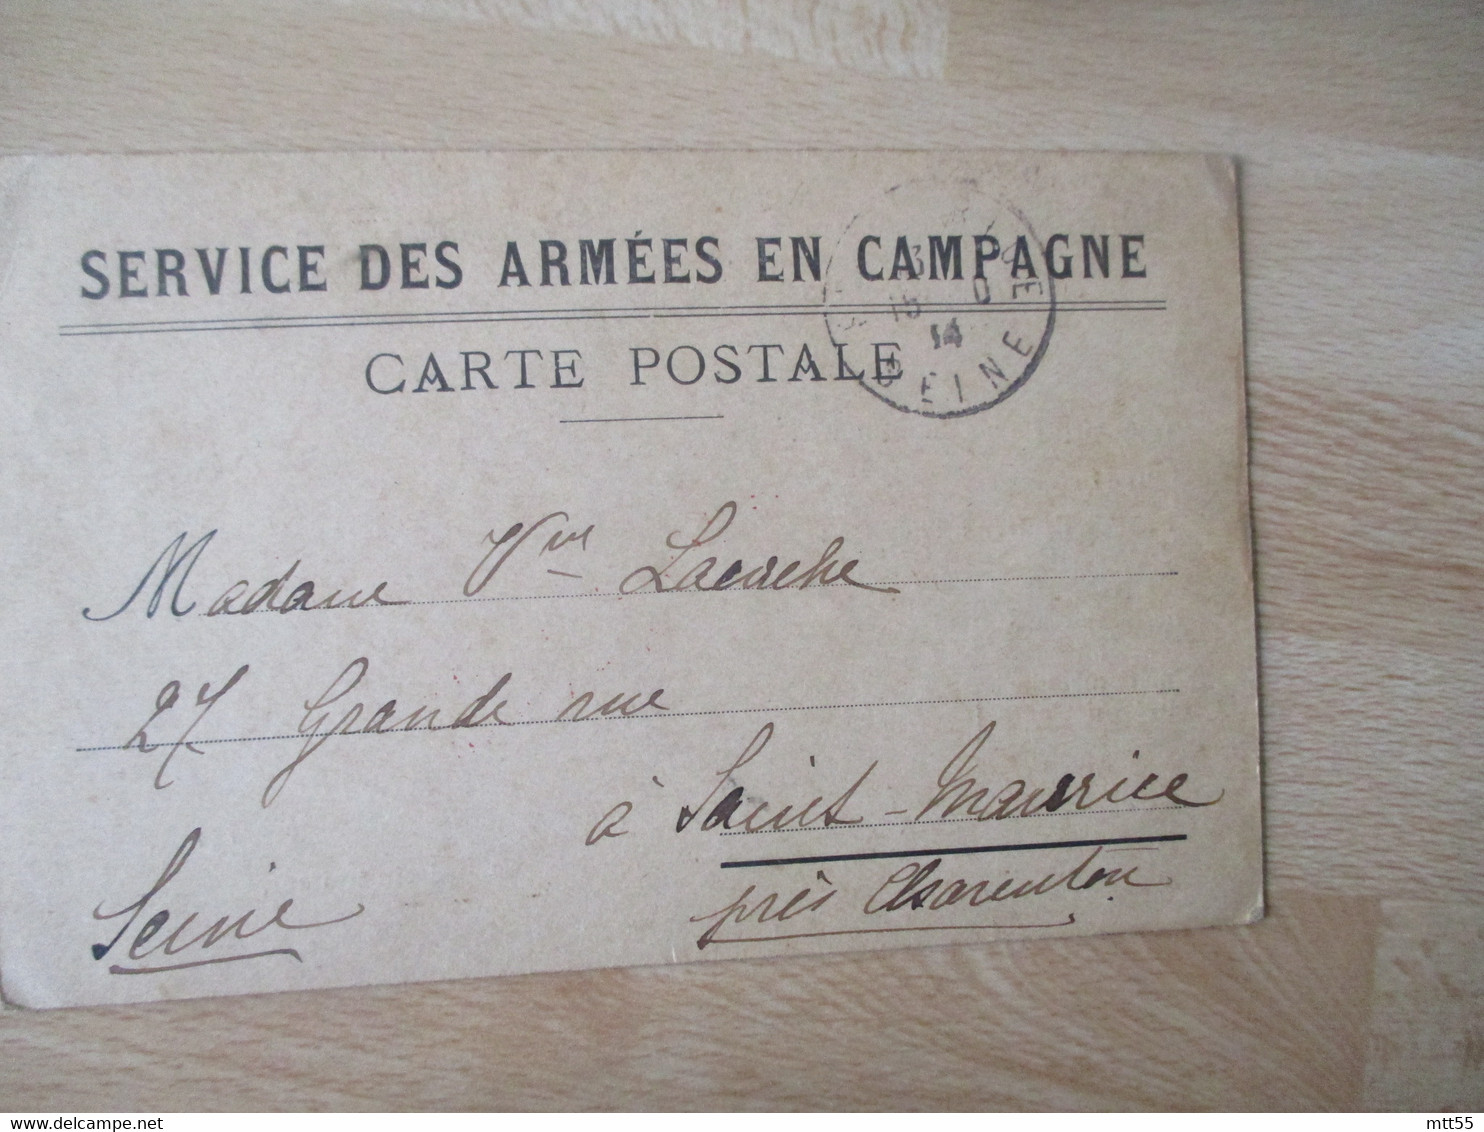 SERVICE DES ARMÉES EN CAMPAGNE
CARTE POSTALE
15 14
SEINE
Madame Vve Laroche
27 Grande rue
à Saint-Maurice
près Charenton
Seine
mtt55